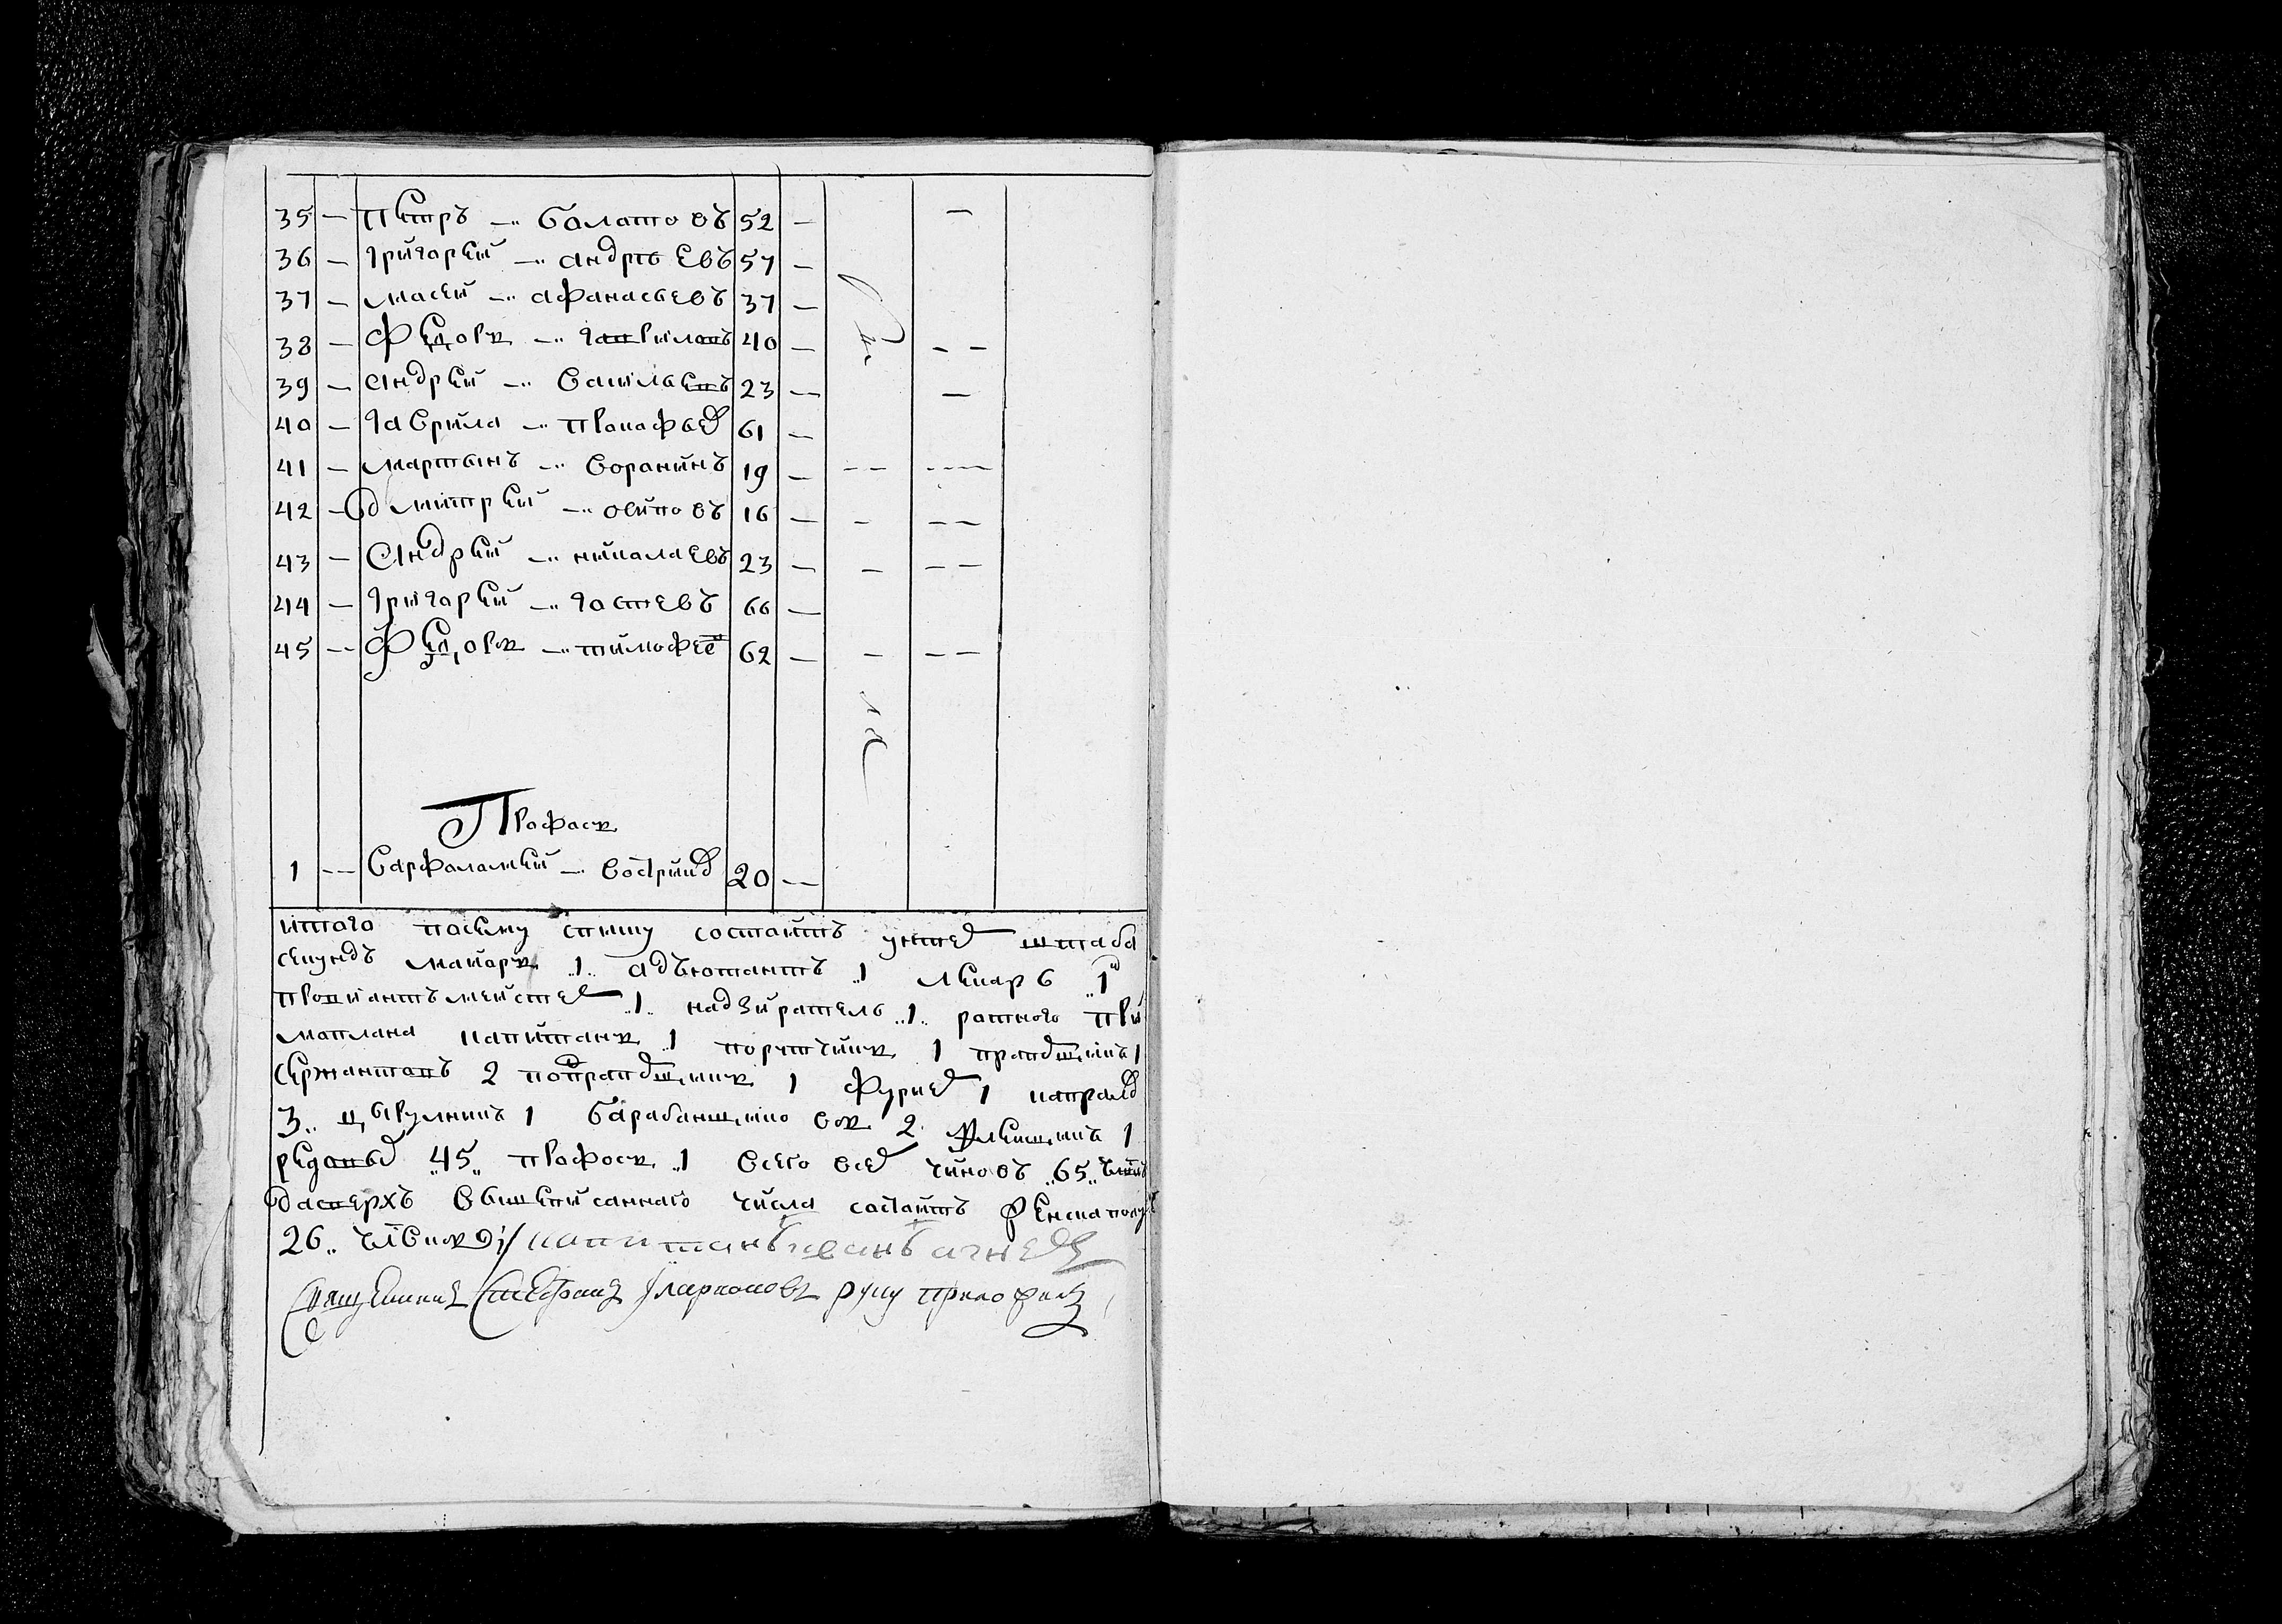 35 — Петръ — болатовъ 52 — —
36 — григорей — андрѣевъ 57 —
37 — масей — афанасьевъ 37 —
38 — Федоръ — гавриловъ 40 — — —
39 — андрей — васильевъ 23 — —
40 — гаврила — пракафьев 61 —
41 — мартынъ — воранинъ 19 — — — — —
42 — дмитрей — осиповъ 16 — — — —
43 — Андрей — николаевъ 23 — — — —
44 — григорей — гостевъ 66 —
45 — Федоръ — тимофее 62 — — — —
Профосъ
1 — варфаламей — вострик 20 —
итого посему списку состоитъ ундер штаба
секундъ маиоръ 1 адъютантъ 1 лекарь 1
провиантъмейстер 1 надзиратель 1 ротного при
маплана капитанъ 1 порутчикъ 1 прапорщикъ 1
сержантовъ 2 подпрапорщикъ 1 фурие 1 капрало
3 цырулникъ 1 барабанщиковъ 2 флейщикъ 1
редовых 45 профосъ 1 всего все чиновъ 65
да сверхъ вышеписаннаго числа состоитъ
26 члвкъ капитанъ иванъ агнев
Священникъ Стефанъ Иларионовъ руку приложилъ